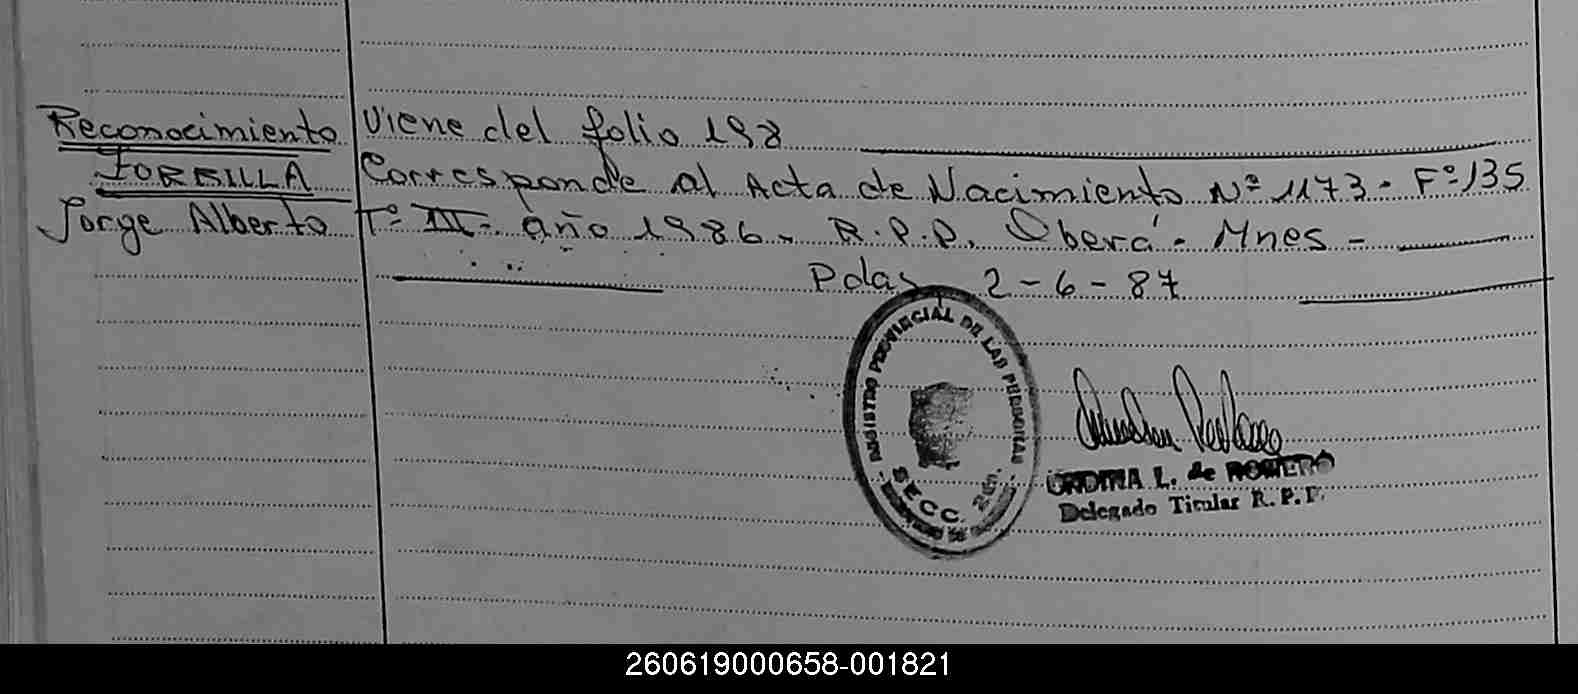 Reconocimiento
Viene del folio 198
Corresponde al Acta de Nacimiento Nº 1173 - Fº 135
Jorge Alberto
Tº III - año 1986 - R.P.P. Oberá - Mnes -
Pdas 2-6-87
REGISTRO PROVINCIAL DE LAS PERSONAS
SECC.
L. de ROMERO
Delegado Titular R. P. P.
260619000658-001821